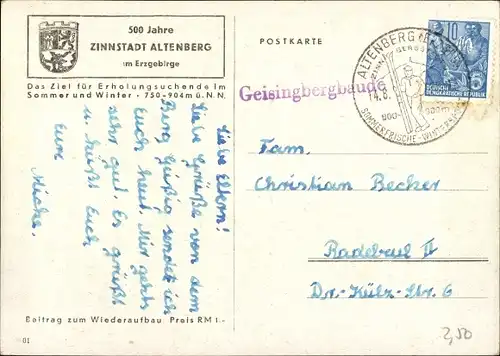 500 Jahre
ZINNSTADT ALTENBERG
im Erzgebirge
Das Ziel für Erholungsuchende im
Sommer und Winter · 750-904m ü.N.N.
POSTKARTE
Geisingbergbaude
ALTENBERG (ERZGEB)
14.8.
SOMMERFRISCHE - WINTERSPORT
10
DEUTSCHE
DEMOKRATISCHE REPUBLIK
Liebe Eltern!
Liebe Grüße von dem
Berg Geising sendet ich
Euch heut. Mir gehts
sehr gut. Es grüßt
u. küßt Euch
Eure
Micha.
Fam.
Christian Becker
Radebeul II
Dr.-Külz-Str. 6
Beitrag zum Wiederaufbau Preis RM 1.-
01
2,50